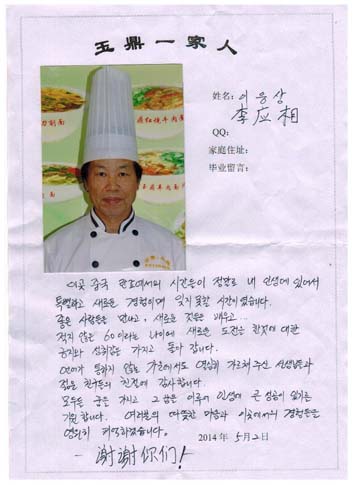 玉鼎一家人
姓名: 이응상
李应相
QQ:
家庭住址:
毕业留言:
이곳 중국 란주에서의 시간들이 정말로 내 인생에 있어서
특별하고 새로운 경험이며 잊지 못할 시간이었습니다.
좋은 사람들을 만나고, 새로운 것들을 배우고...
적지 않은 60이라는 나이에 새로운 도전을 한것에 대한
긍지와 성취감을 가지고 돌아 갑니다.
언어가 통하지 않는 가운데서도 열심히 가르쳐 주신 선생님들과
젊은 친구들의 친절에 감사합니다.
모두들 꿈을 가지고 그 꿈을 이루어 인생에 큰 성공이 있기를
기원합니다. 여러분의 따뜻한 마음과 이곳에서의 경험들을
영원히 기억하겠습니다.
2014年 5月2日
- 谢谢你们!